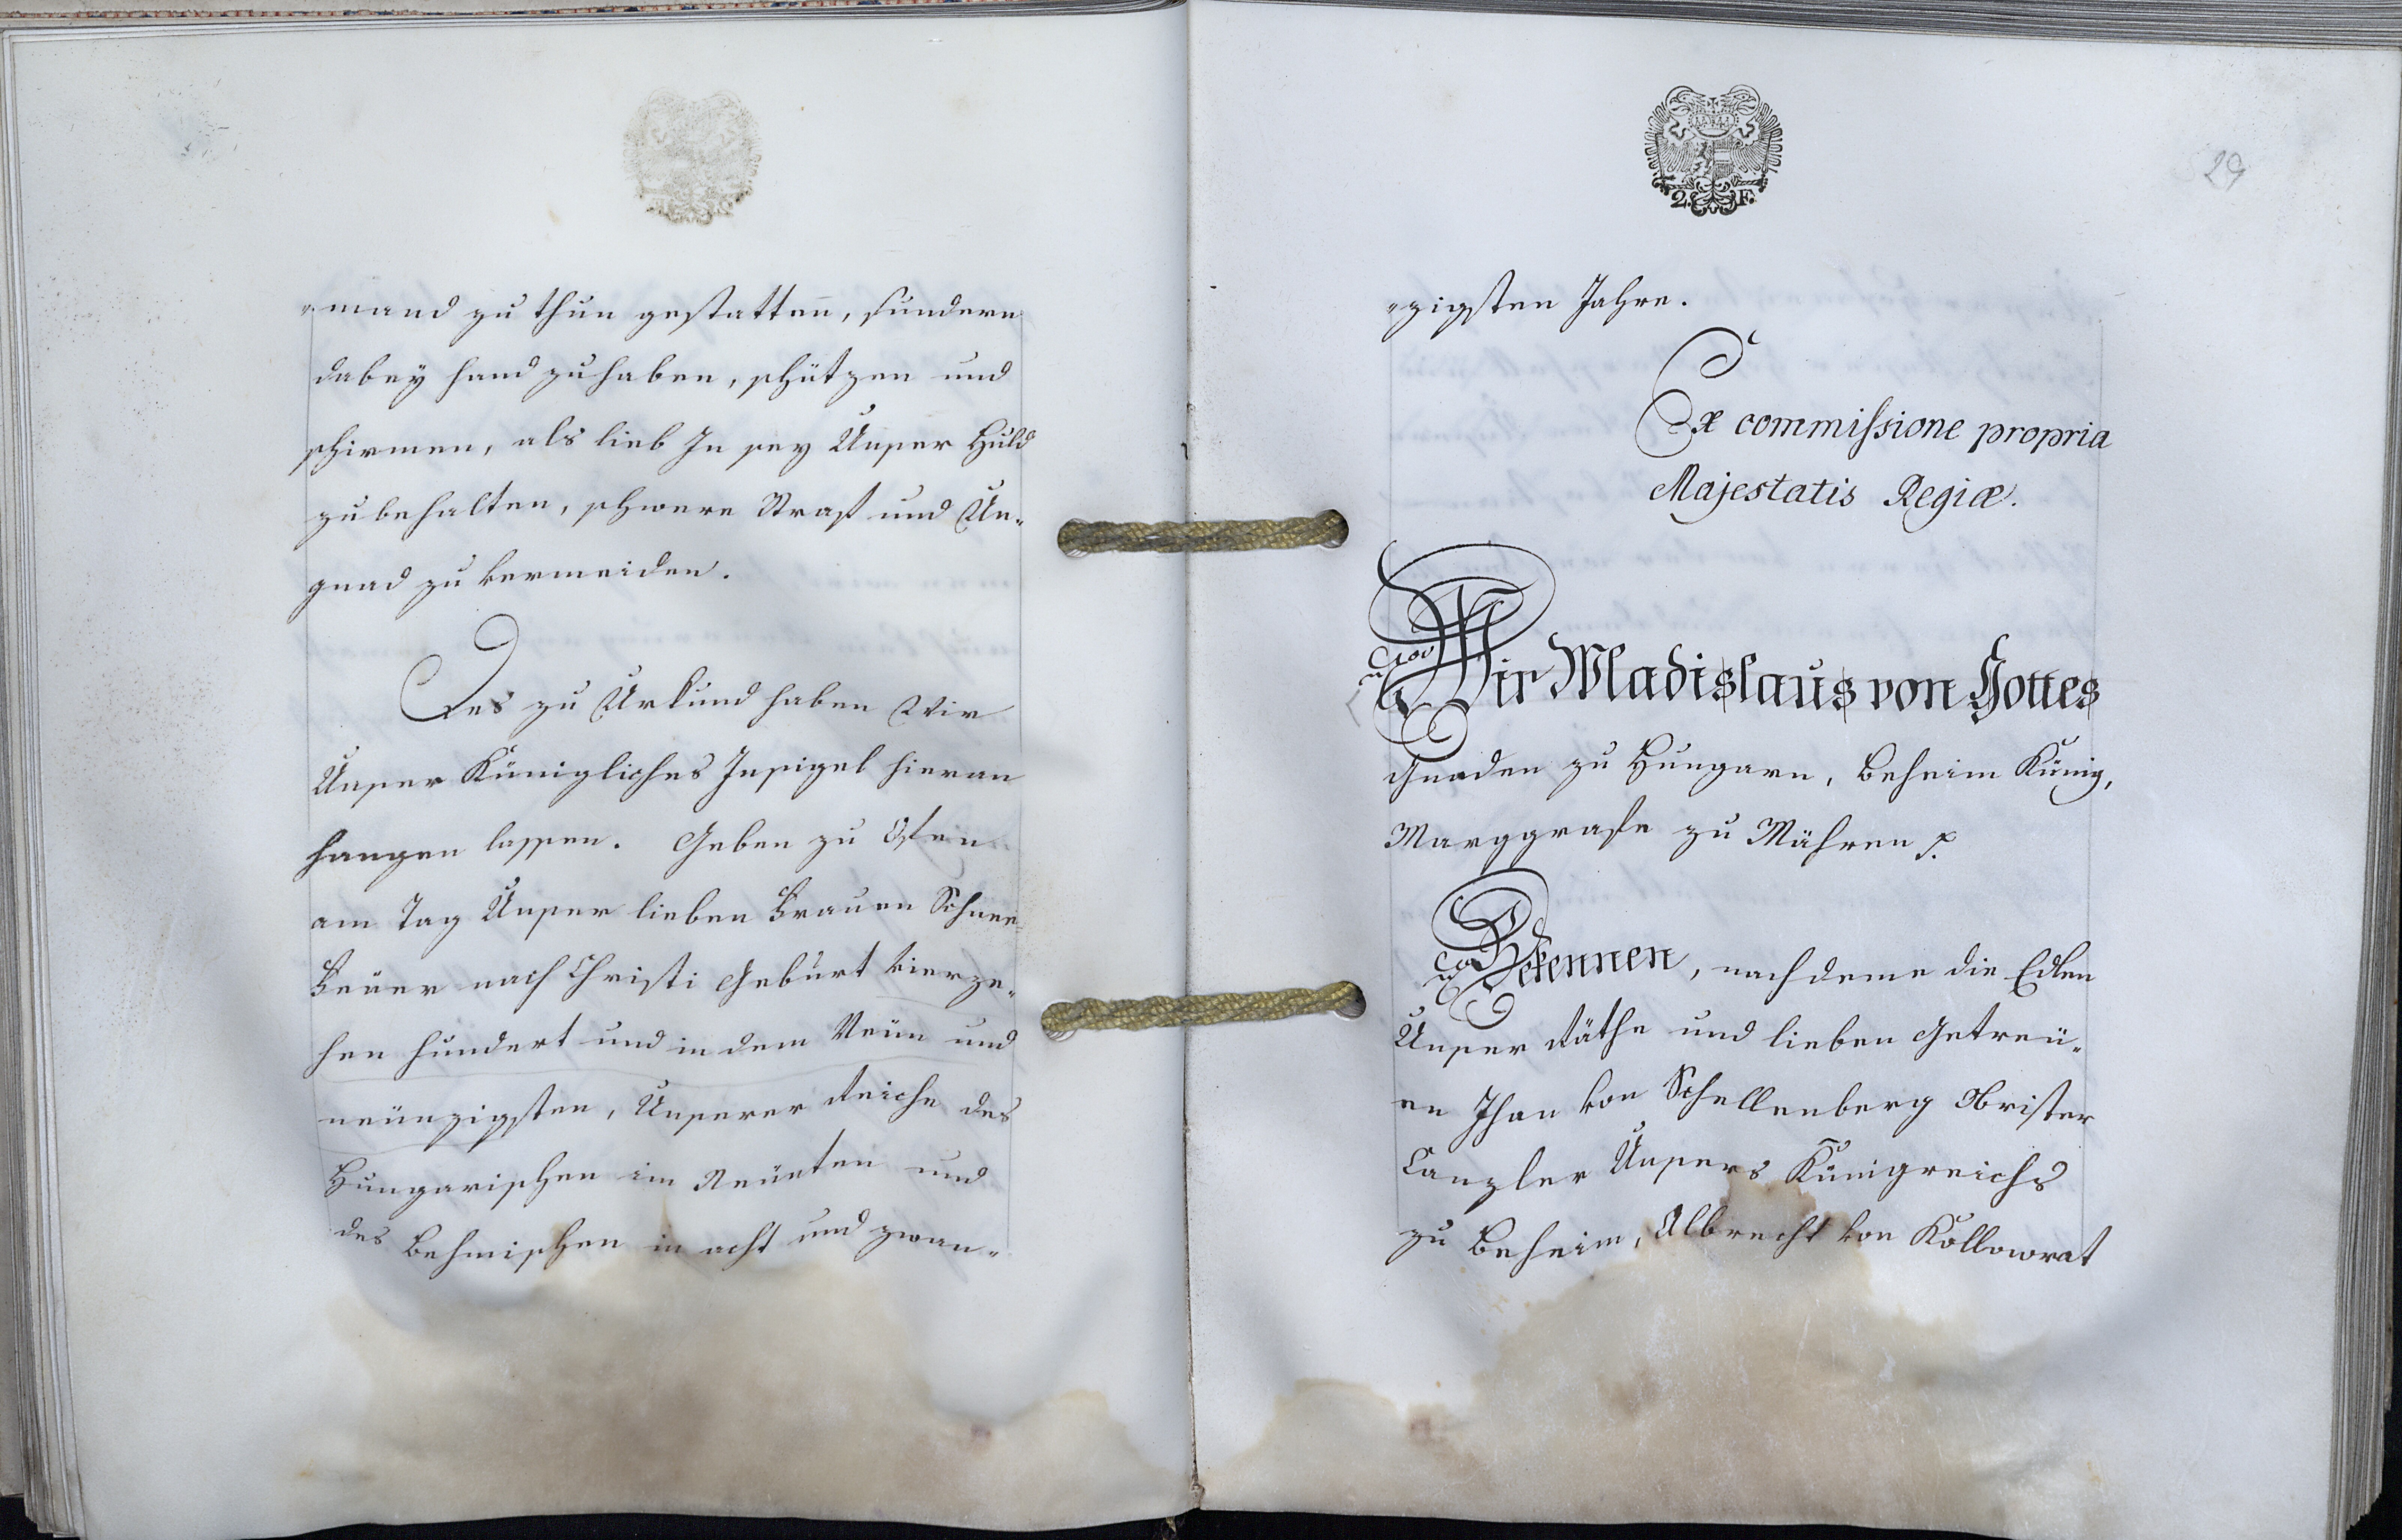 -mand zu thun gestattenn, sundern
dabey hand zuhaben, schützen und
schirmen, als lieb In sey Unser Huld
zubehalten, schwere Straf und Un-
gnad zu vermeiden.
Des zu Urkund haben Wir
Unser Künigliches Insigel hieran
hangen lassen. Geben zu Ofen
am Tag Unser lieben Frauen Schnee
Feüer nach Christi Geburt vierze-
hen hundert und in dem Neün und
neünzigsten, Unserer Reiche des
Hungarischen im Neünten und
des Behmischen in acht und zwan-
29
2. F.
-zigsten Jahre.
Ex commissione propria
Majestatis Regiæ.
Wir Wladislaus von Gottes
Gnaden zu Hungarn, Beheim Künig,
Marggrafe zu Mähren
Bekennen, nachdeme die Edlen
Unser Räthe und lieben Getreü-
en Jhan von Schellenberg Obrister
Canzler Unsers Künigreichs
zu Beheim, Albrecht von Kollowrat